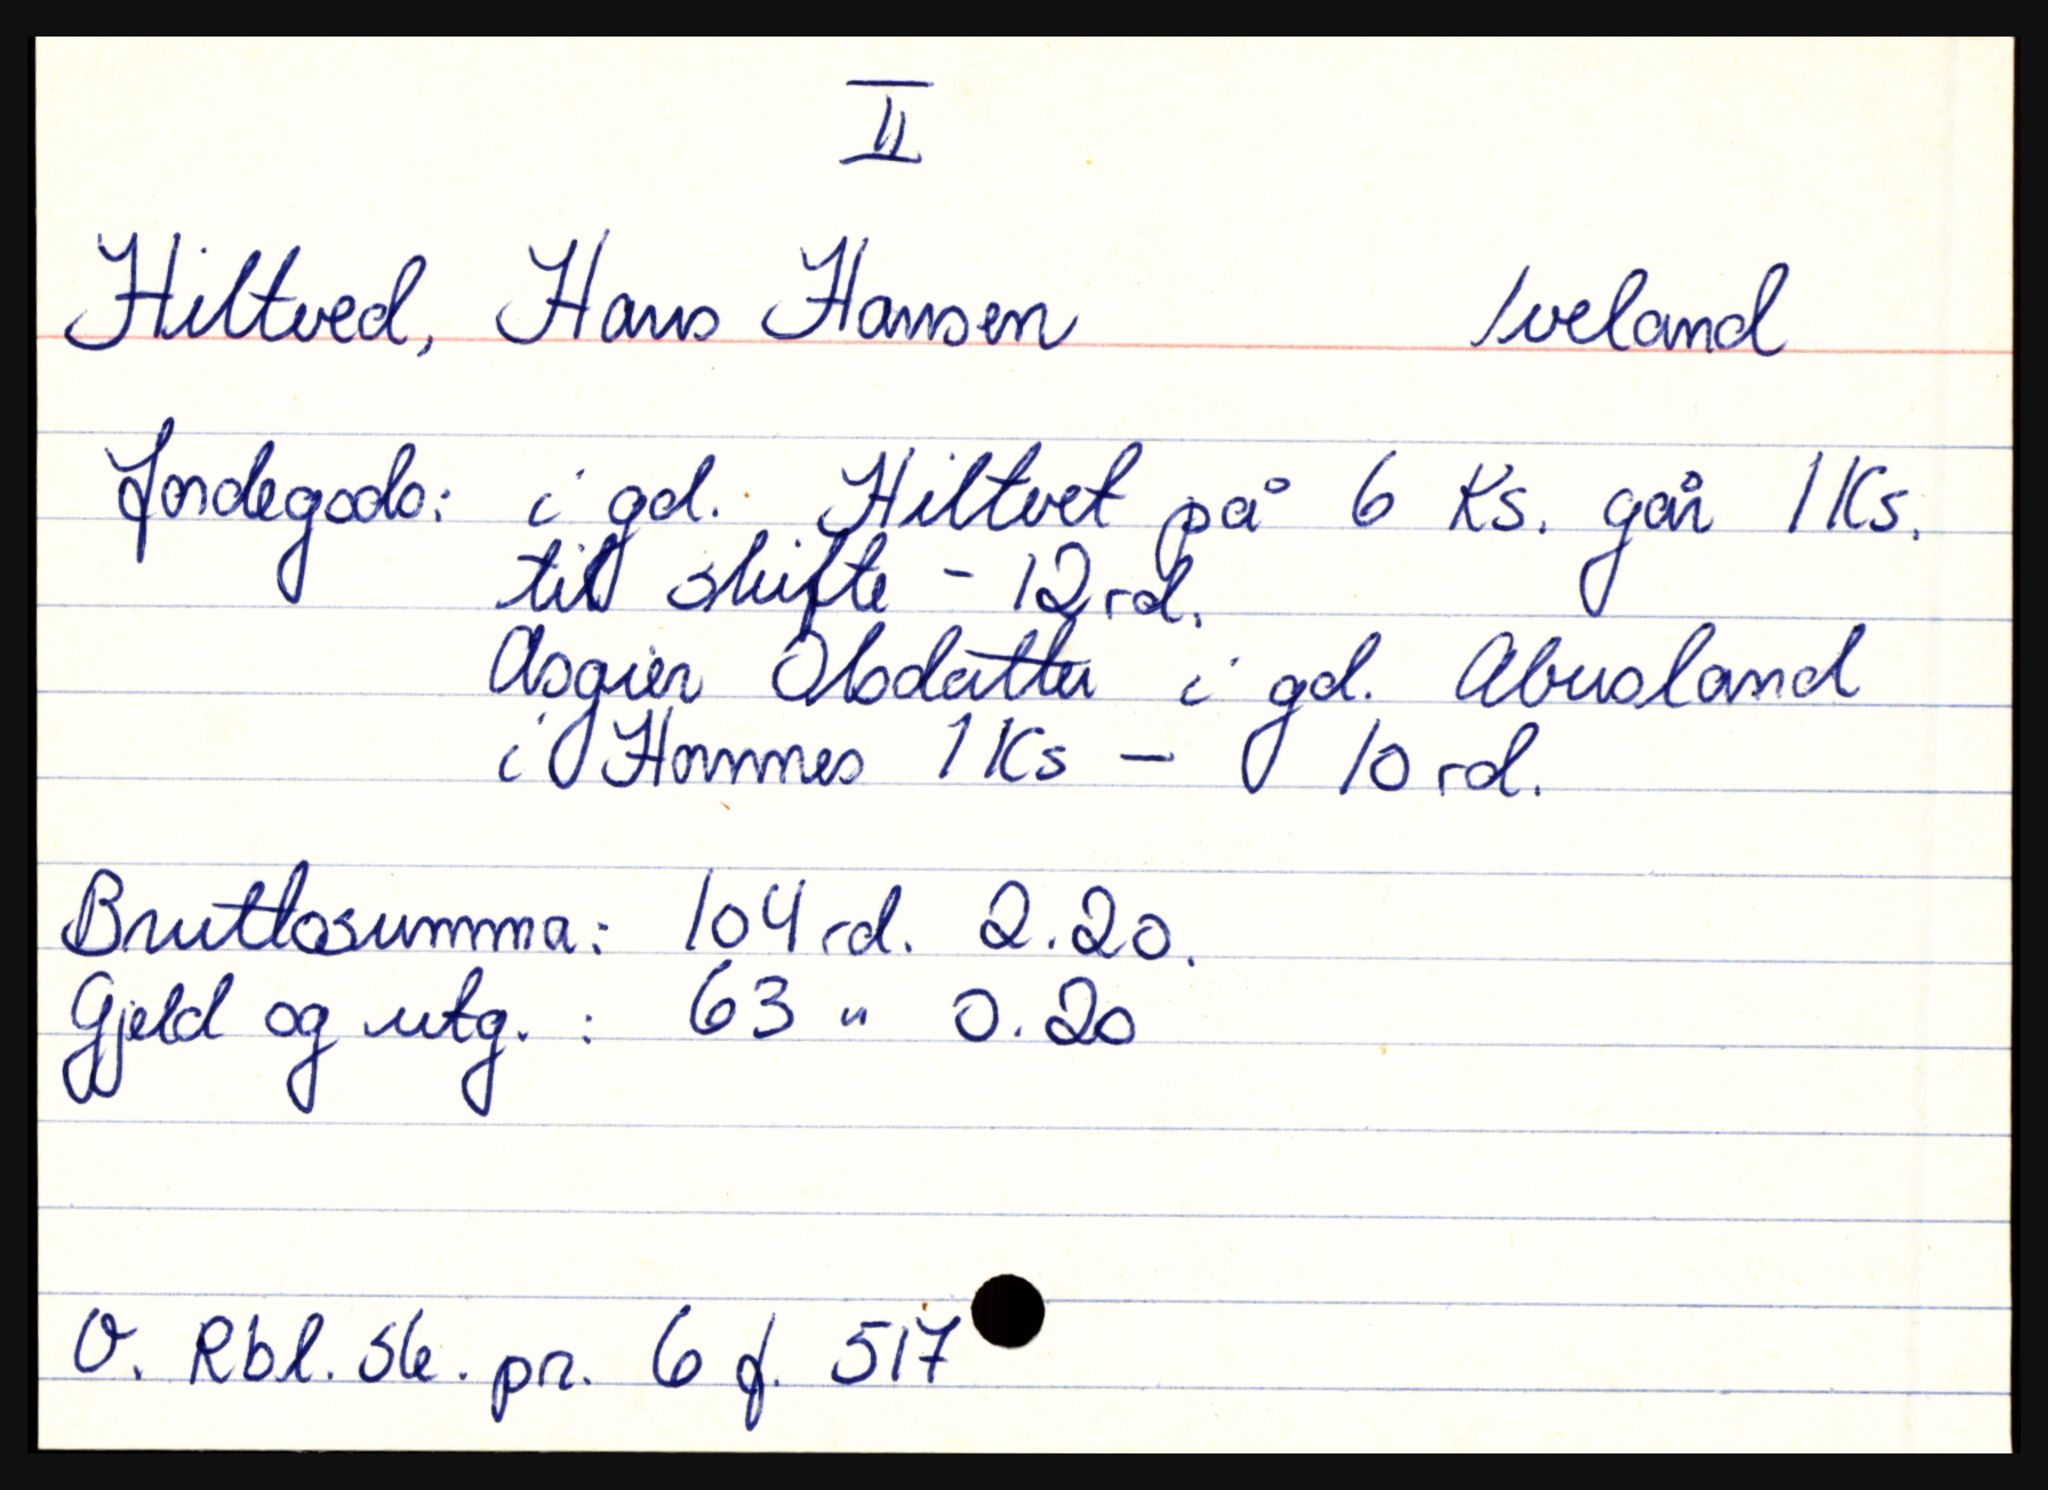 II
Hiltved, Hans Hansen Iveland
Jordegods: i gd. Hiltvet på 6 Ks. går 1 Ks.
til skifte - 12 rd.
Asgier Olsdatter i gd. Abusland
i Hommes 1 Ks - 10 rd.
Bruttosumma: 104 rd. 2.20.
Gjeld og utg. : 63 " 0.20
O. Rbl. Sk. pr. 6 f. 517